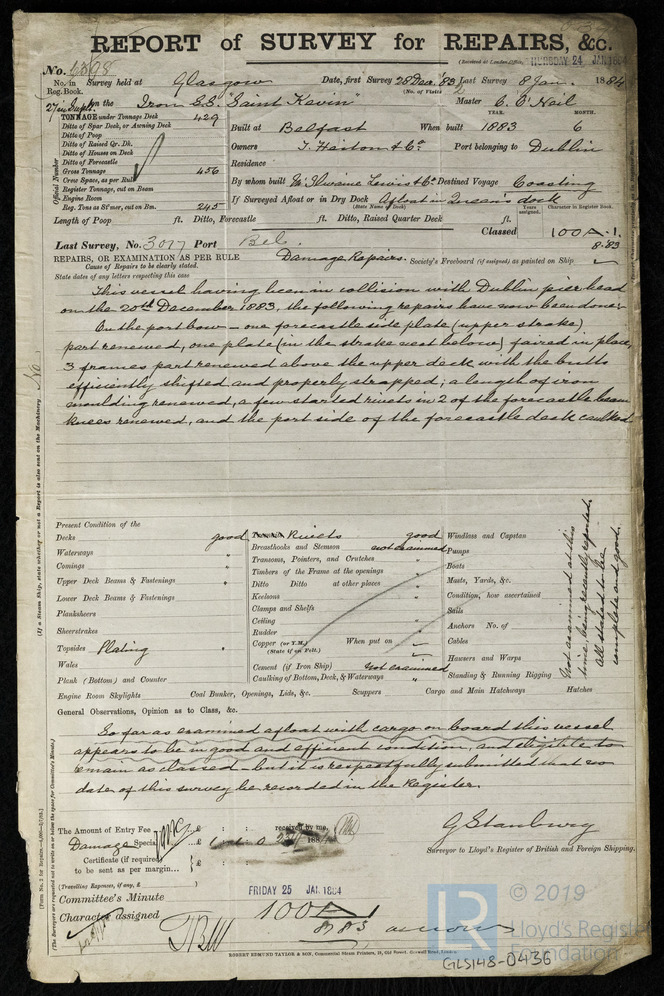 REPORT of SURVEY for REPAIRS, &c.
(Received at London Office THURSDAY 24 JAN 1884
No. 6398
No. in Reg. Book. Survey held at Glasgow Date, first Survey 28 Dec. '83 Last Survey 8 Jan. 1884
(No. of Visits
27 in Sup. on the Iron S.S. "Saint Kevin" Master C. O'Neil
TONNAGE under Tonnage Deck 429
Ditto of Spar Deck, or Awning Deck
Ditto of Poop
Ditto of Raised Qr. Dk.
Ditto of Houses on Deck
Ditto of Forecastle
Gross Tonnage 456
Crew Space, as per Rule
Register Tonnage, cut on Beam
Engine Room
Reg. Tons as St'mer, cut on Bm. 245
Official Number
YEAR. MONTH.
Built at Belfast When built 1883 6
Owners T. Heiton & Co. Port belonging to Dublin
Residence
By whom built McIlwaine Lewis & Co. Destined Voyage Coasting
If Surveyed Afloat or in Dry Dock Afloat in Queen's dock
(State Name of Dock)
Years assigned. Character in Register Book.
Length of Poop ft. Ditto, Forecastle ft. Ditto, Raised Quarter Deck ft.
Classed 100A.1.
8.83
Last Survey, No. 3077 Port Bel.
REPAIRS, OR EXAMINATION AS PER RULE Damage Repairs. Society's Freeboard (if assigned) as painted on Ship
Cause of Repairs to be clearly stated.
State dates of any letters respecting this case
This vessel having been in collision with Dublin pier head
on the 20th December 1883, the following repairs have now been done:-
On the port bow - one forecastle side plate (upper strake)
part renewed, one plate (in the strake next below) faired in place,
3 frames part renewed above the upper deck with the butts
efficiently shifted and properly strapped; a length of iron
moulding renewed, a few started rivets in 2 of the forecastle beam
knees renewed, and the port side of the forecastle deck caulked.
(If a Steam Ship, state whether or not a Report is also sent on the Machinery. No
Present Condition of the
Decks good
Waterways "
Comings "
Upper Deck Beams & Fastenings "
Lower Deck Beams & Fastenings
Planksheers
Sheerstrakes
Topsides Plating "
Wales
Plank (Bottom) and Counter
Engine Room Skylights Coal Bunker, Openings, Lids, &c. Scuppers Cargo and Main Hatchways Hatches
Rivets good
Breasthooks and Stemson not examined
Transoms, Pointers, and Crutches "
Timbers of the Frame at the openings "
Ditto Ditto at other places "
Keelsons "
Clamps and Shelfs
Ceiling
Rudder
Copper (or Y.M.) When put on
(State if on Felt.)
Cement (if Iron Ship) Not examined
Caulking of Bottom, Deck, & Waterways "
Windlass and Capstan
Pumps
Boats
Masts, Yards, &c.
Condition, how ascertained
Sails
Anchors No. of
Cables
Hawsers and Warps
Standing & Running Rigging
Not examined at this
time being recently reported.
All stated to be
complete and good.
General Observations, Opinion as to Class, &c.
So far as examined afloat with cargo on board this vessel
appears to be in good and efficient condition, and eligible to
remain as classed - but it is respectfully submitted that no
date of this survey be recorded in the Register.
The Amount of Entry Fee £ : : received by me,
Damage Special £ 188
Certificate (if required) £ : :
to be sent as per margin...
(Travelling Expenses, if any, £
G Stanbury
Surveyor to Lloyd's Register of British and Foreign Shipping.
Committee's Minute FRIDAY 25 JAN. 1884
Character assigned 100A1
8.83 as now
ROBERT EDMUND TAYLOR & SON, Commercial Steam Printers, 19, Old Street, Goswell Road, London.
LR
© 2019
Lloyd's Register
Foundation
GLS148-0436